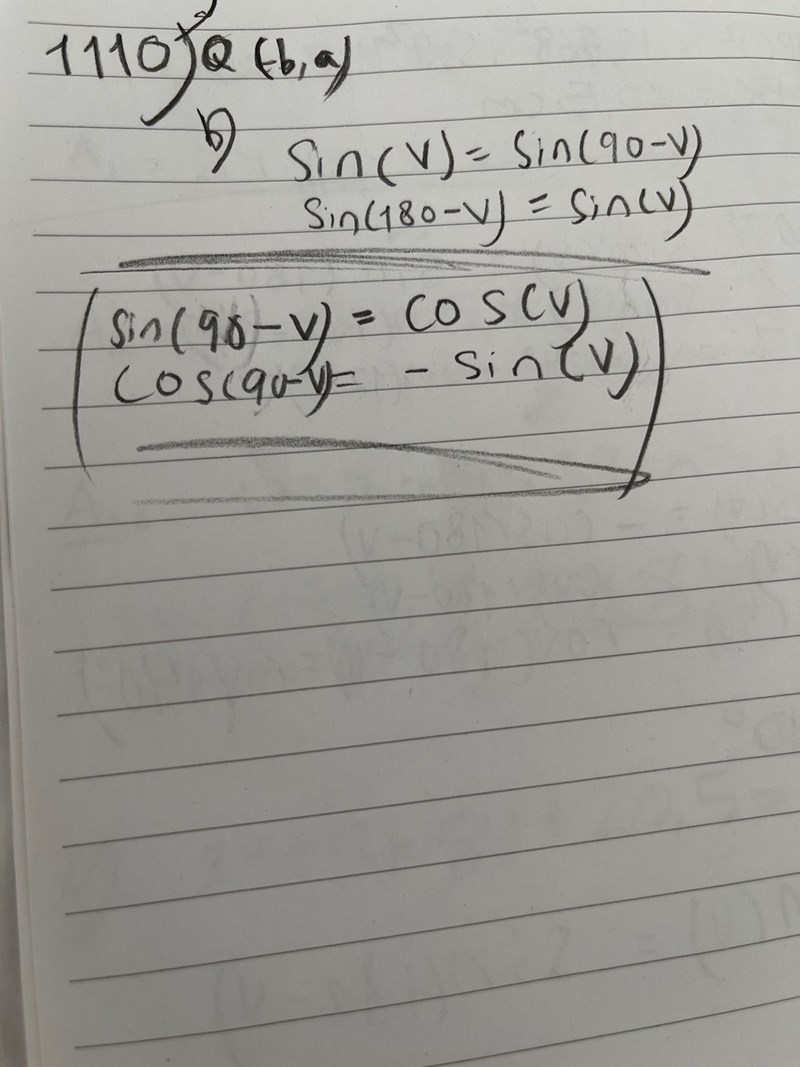 1110) a Q (-b, a)
b) Sin(v) = Sin(90-v)
Sin(180-v) = Sin(v)
Sin(90-v) = COS(v)
COS(90-v) = - Sin(v)